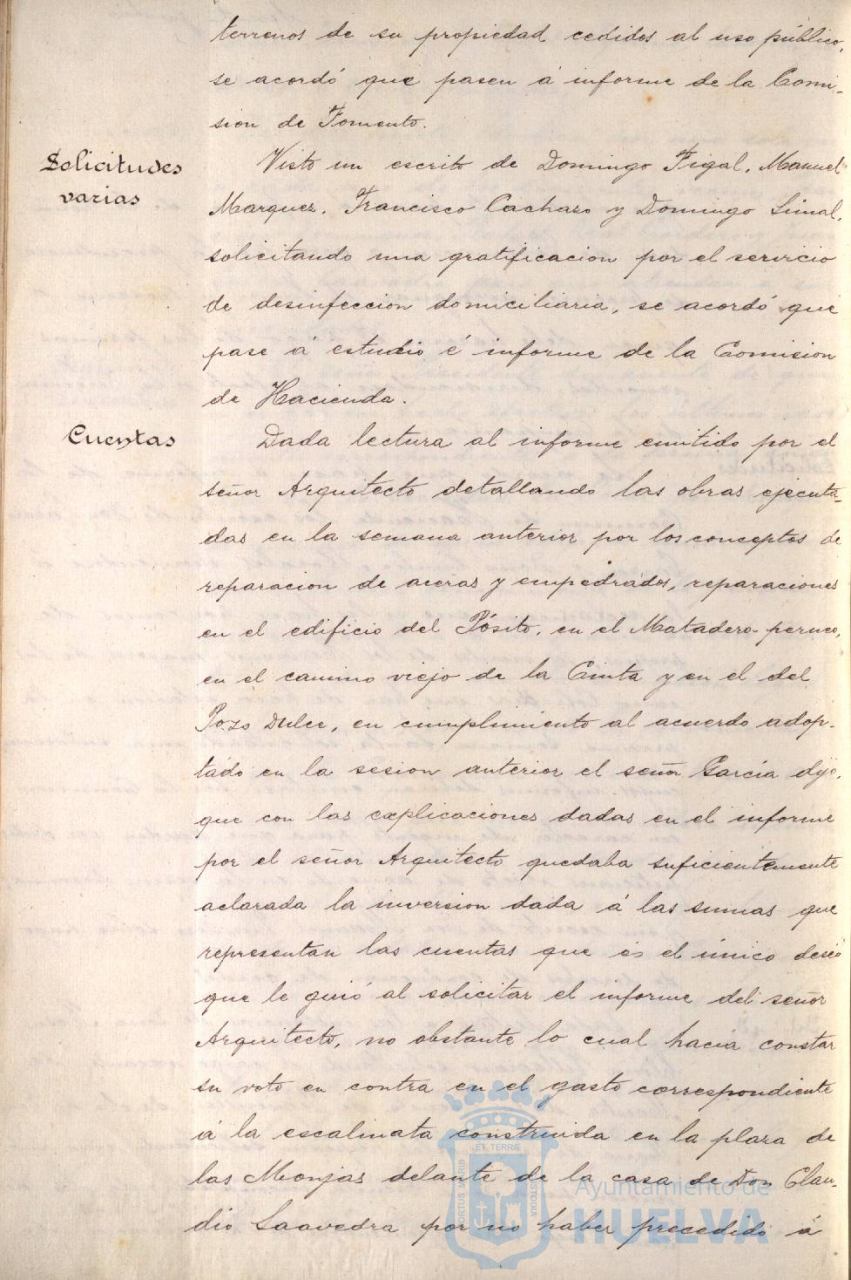 terrenos de su propiedad cedidos al uso público,
se acordó que pasen á informe de la Comi-
sion de Fomento.
Solicitudes
varias
Visto un escrito de Domingo Figal, Manuel
Marquez, Francisco Cacharo y Domingo Simal,
solicitando una gratificacion por el servicio
de desinfeccion domiciliaria, se acordó que
pase á estudio é informe de la Comision
de Hacienda.
Cuentas
Dada lectura al informe emitido por el
señor Arquitecto detallando las obras ejecuta-
das en la semana anterior por los conceptos de
reparacion de aceras y empedrados, reparaciones
en el edificio del Pósito, en el Matadero
en el camino viejo de la Cinta y en el del
Pozo Dulce, en cumplimiento al acuerdo adop-
tado en la sesion anterior el señor García dijo,
que con las explicaciones dadas en el informe
por el señor Arquitecto quedaba suficientemente
aclarada la inversion dada á las sumas que
representan las cuentas que es el único deseo
que le guió al solicitar el informe del señor
Arquitecto, no obstante lo cual hacía constar
su voto en contra en el gasto correspondiente
á la escalinata construida en la plaza de
las Monjas delante de la casa de Don Clau-
dio Saavedra por no haber precedido á
Ayuntamiento de
HUELVA